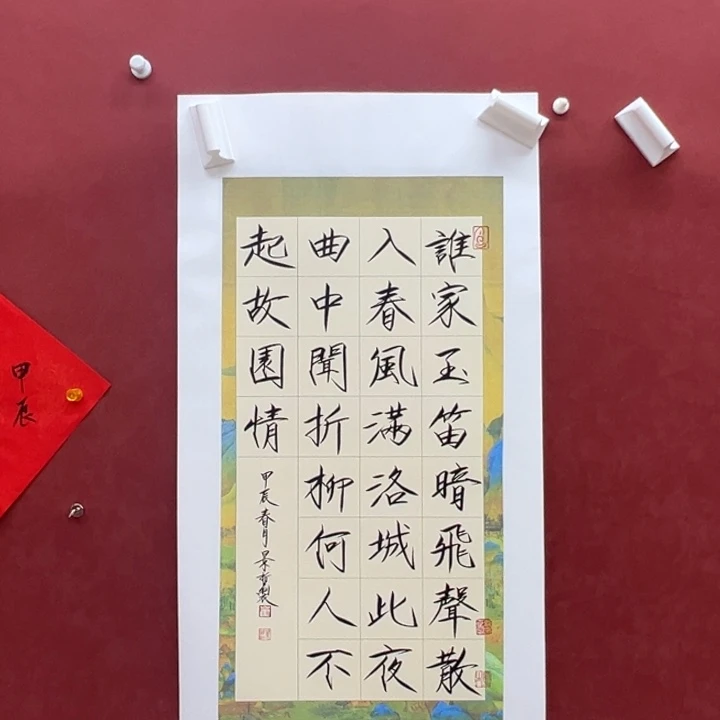 誰家玉笛暗飛聲散
入春風滿洛城此夜
曲中聞折柳何人不
起故園情
甲辰春月景哲製
甲辰